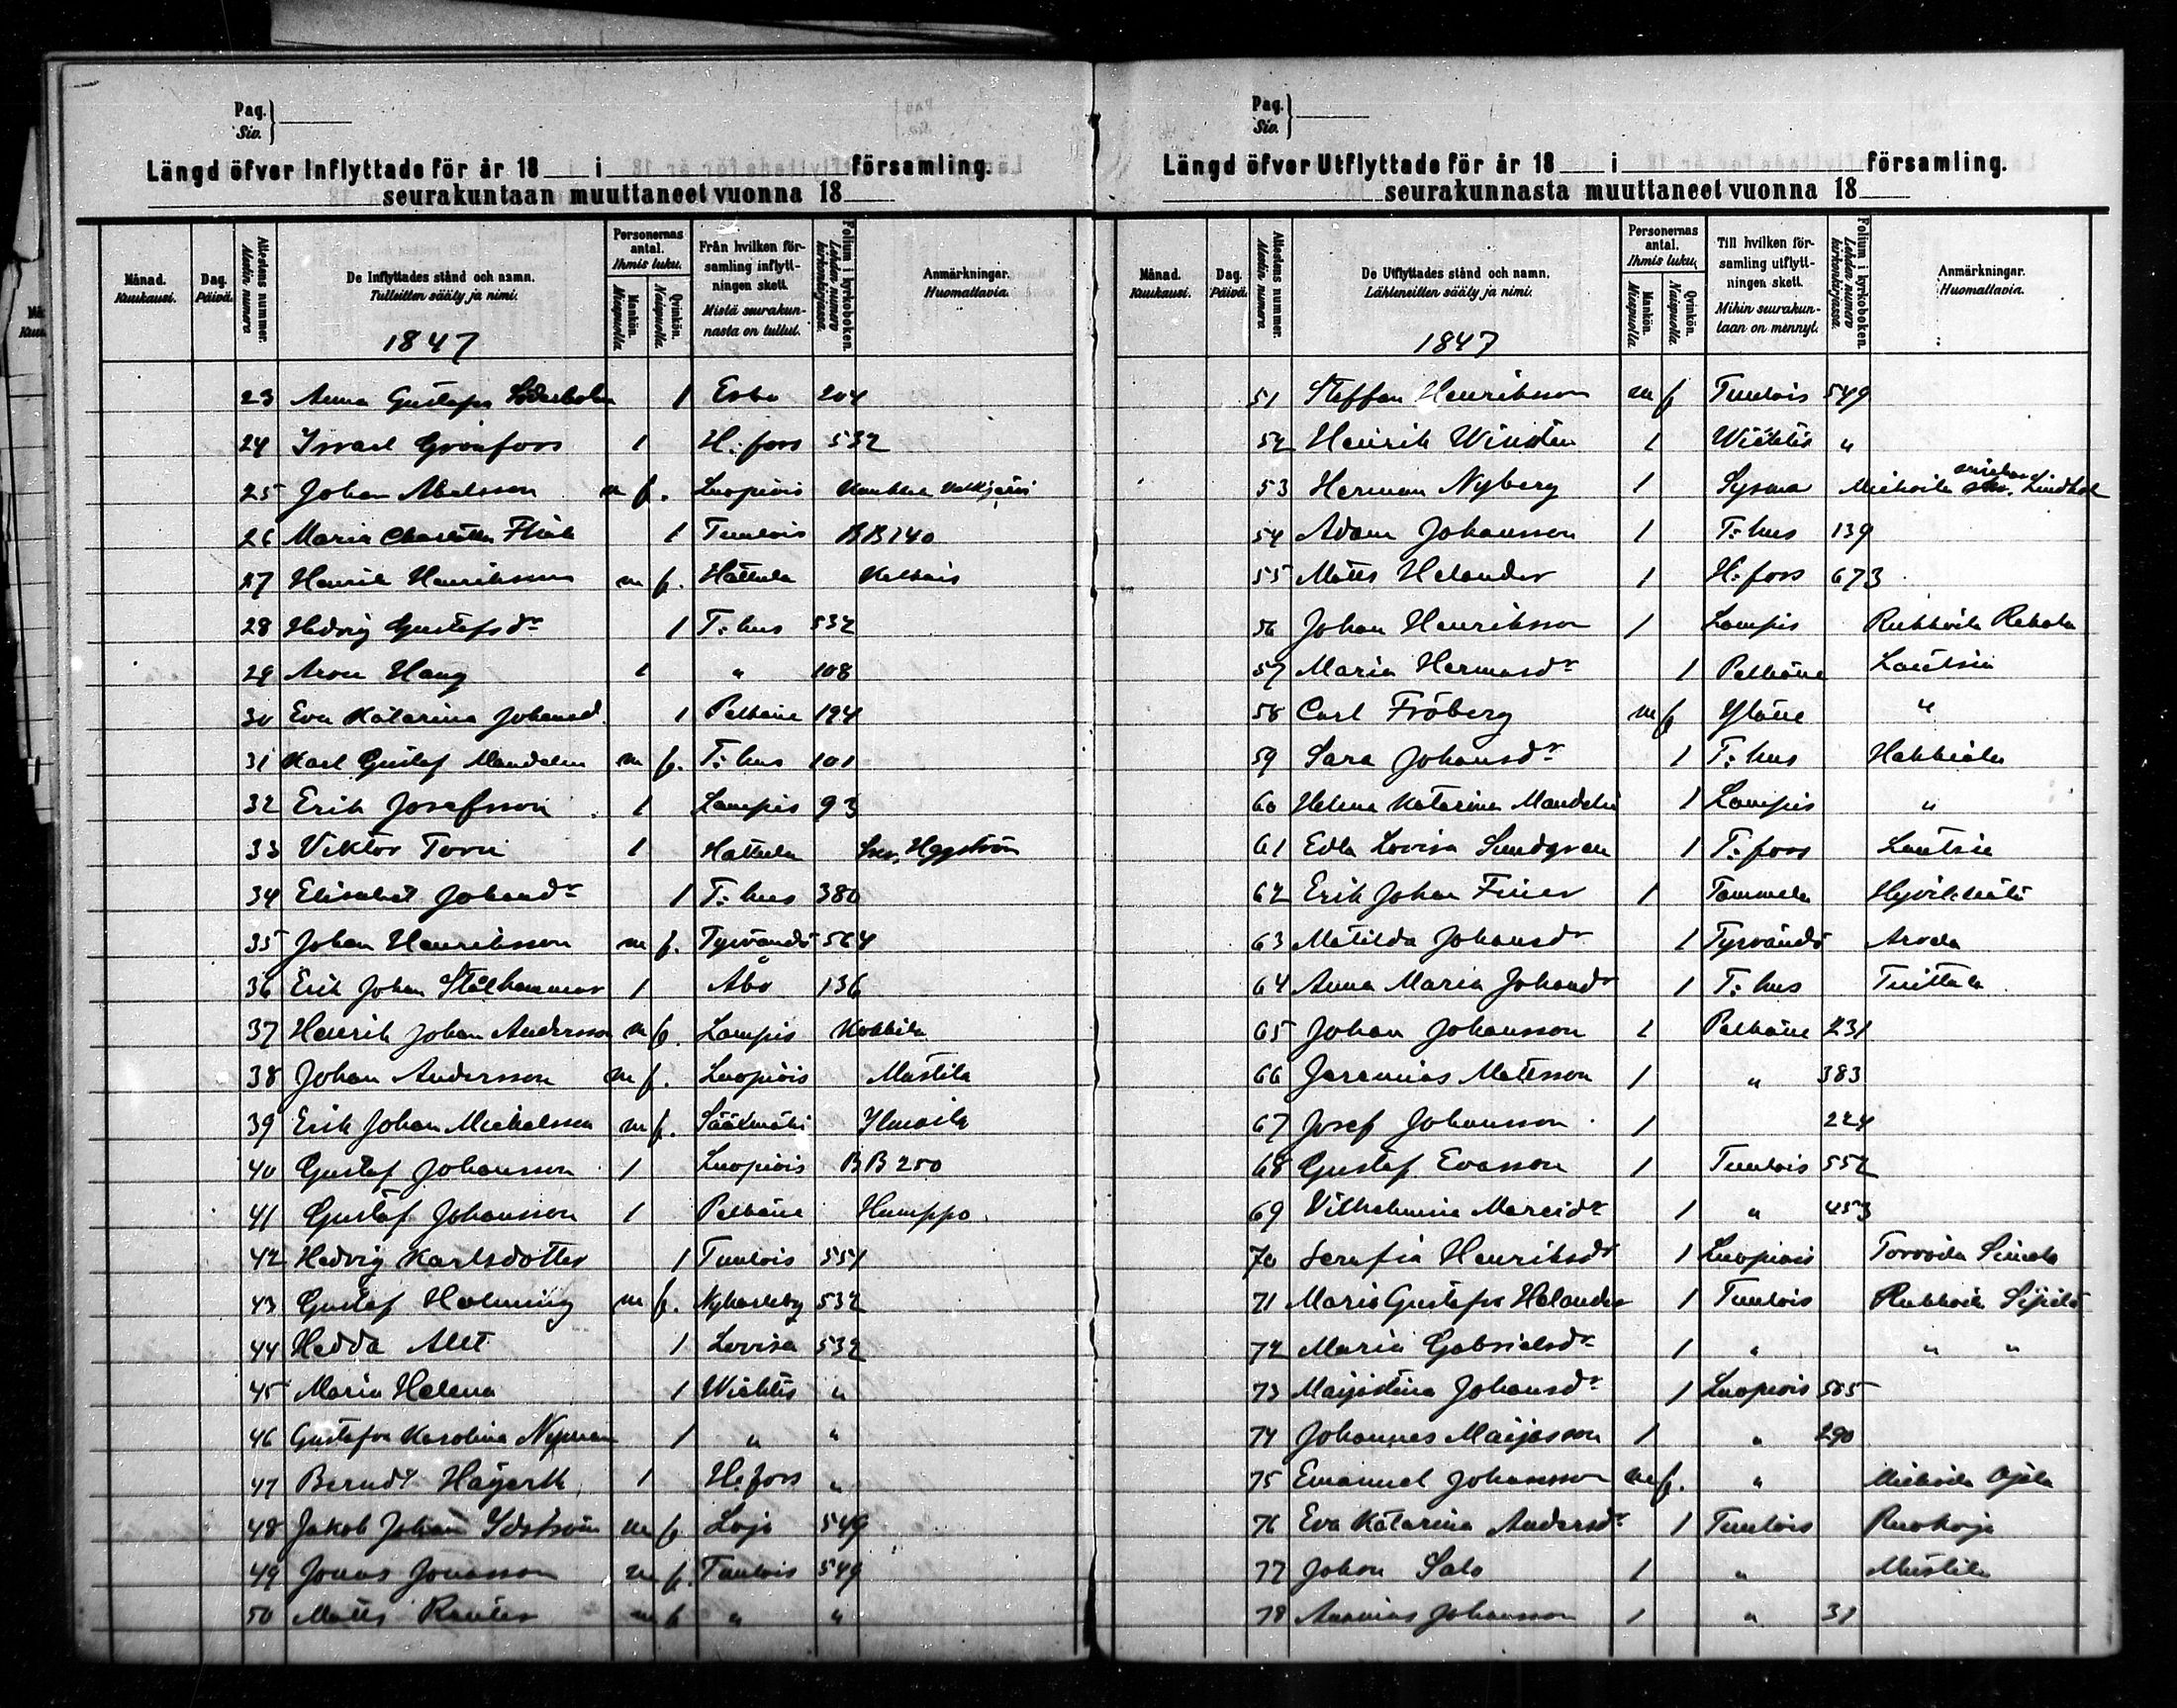 Pag.
Siv.
Längd öfver Inflyttade för år 18 i församling.
seurakuntaan muuttaneet vuonna 18
Månad. Kuukausi.
Dag. Päivä.
Attestens nummer. Alestin numero
De Inflyttades stånd och namn.
Tulleitten sääty ja nimi.
1847
Personernas antal. Ihmis luku.
Mankön. Miespuolia.
Qvinkön. Naispuolia.
Från hvilken församling inflyttningen skett.
Mistä seurakunnasta on tullut.
Folium i kyrkoboken. Lehden numero kirkonkirjassa.
Anmärkningar. Huomattavia.
23 Anna Gustafva Söderholm 1 Esbo 204
24 Israel Grönfors 1 H:fors 532
25 Johan Abelsson m f. Luopiois
26 Maria Charlotta Flink 1 Tuulois BB 240
27 Henrik Henriksson m f. Hattula
28 Hedvig Gustafsdr 1 T:hus 532
29 Aron Hang 1 " 108
30 Eva Katarina Johansd. 1 Pelkäne 194
31 Karl Gustaf Mandelin m f. T:hus 101
32 Erik Josefsson 1 Lampis 93
33 Viktor 1 Hattula
34 Elisabet Johansdr 1 T:hus 380
35 Johan Henriksson m f. Tyrvändö 564
36 Erik Johan Stålhammar 1 Åbo 136
37 Henrik Johan Andersson m f. Lampis Kokkila
38 Johan Andersson m f. Luopiois Mustila
39 Erik Johan Michelsson m f. Sääksmäki Ylmoila
40 Gustaf Johansson 1 Luopiois BB 250
41 Gustaf Johansson 1 Pelkäne Humppo.
42 Hedvig Karlsdotter 1 Tuulois 551
43 Gustaf Holming m f. Nykarleby 532
44 Hedda Alit 1 Lovisa 532
45 Maria Helena 1 Wichtis "
46 Gustafva Karolina Nyman 1 " "
47 Berndt 1 H:fors "
48 Jakob Johan Idström m f Lojo 549
49 Jonas Jonasson m f. Tuulois 549
50 Matts m f " "
Pag.
Siv.
Längd öfver Utflyttade för år 18 i församling.
seurakunnasta muuttaneet vuonna 18
Månad. Kuukausi.
Dag. Päivä.
Attestens nummer. Alestin numero
De Utflyttades stånd och namn.
Lähteneitten sääty ja nimi.
1847
Personernas antal. Ihmis luku.
Mankön. Miespuolia.
Qvinkön. Naispuolia.
Till hvilken församling utflyttningen skett.
Mihin seurakuntaan on mennyt.
Folium i kyrkoboken. Lehden numero kirkonkirjassa.
Anmärkningar. Huomattavia.
51 Staffan Henriksson m f Tuulois 549
52 Henrik Windén 1 Wichtis "
53 Herman Nyberg 1 Sysma
54 Adam Johansson 1 T:hus 139
55 Matts Helander 1 H:fors 673
56 Johan Henriksson 1 Lampis
57 Maria Hermansdr 1 Pelkäne Lautsia
58 Carl Fröberg m f Yläne "
59 Sara Johansdr 1 T:hus Hakkiala
60 Helena Katarina Mandelin 1 Lampis "
61 Edla Lovisa Sundgren 1 T:fors Lautsia
62 Erik Johan 1 Tammela
63 Matilda Johansdr 1 Tyrvändö Arvela
64 Anna Maria Johansdr 1 T:hus Tuittula
65 Johan Johansson 1 Pelkäne 231
66 Jeremias Matsson 1 " 383
67 Josef Johansson 1 224
68 Gustaf Evasson 1 Tuulois 552
69 Vilhelmina 1 " 453
70 Serafia Henriksdr 1 Luopiois
71 Maria Gustafva Helander 1 Tuulois
72 Maria Gabrielsdr 1 " " "
73 Maijastina Johansdr 1 Luopiois 505
74 Johannes Maijasson 1 " 290
75 Emanuel Johansson m f. "
76 Eva Katarina Andersdr 1 Tuulois
77 Johan Salo 1 " Mustila
78 Ananias Johansson 1 " 31